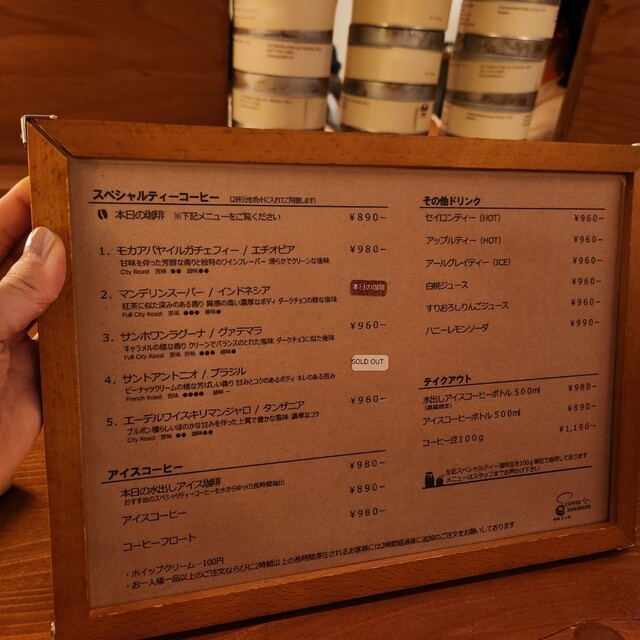 スペシャルティーコーヒー (2杯分をポットに入れてご用意します)
本日の珈琲 ※下記メニューをご覧ください ¥890-
1. モカアバヤイルガチェフィー / エチオピア ¥980-
甘味を伴った芳醇な香りと独特のワインフレーバー 滑らかでクリーンな後味
City Roast 苦味 ●● 酸味●●
2. マンデリンスーパー / インドネシア 本日の珈琲
紅茶に似た深みのある香り 質感の高い濃厚なボディ ダークチョコの様な後味
Full City Roast 苦味 ●●● 酸味●
3. サンホワンラグーナ / グァテマラ ¥960-
キャラメルの様な香り クリーンでバランスのとれた風味、ダークチョコに似た後味
Full City Roast 苦味 ●●● 酸味●
4. サントアントニオ / ブラジル SOLD OUT
ピーナッツクリームの様な芳ばしい香り 甘みとコクのあるボディ キレのある苦み
French Roast 苦味 ●●●● 酸味 -
5. エーデルワイスキリマンジャロ / タンザニア ¥960-
ブルボン種らしいほのかな甘みを伴った上質で豊かな風味 濃厚なコク
City Roast 苦味 ●● 酸味●●
アイスコーヒー
本日の水出しアイス珈琲 ¥980-
おすすめのスペシャリティーコーヒーを水からゆっくり長時間抽出
アイスコーヒー ¥890-
コーヒーフロート ¥980-
・ホイップクリーム…100円
・お一人様一品以上のご注文ならびに2時間以上の長時間滞在されるお客様には2時間経過後に追加のご注文をお願いしております
その他ドリンク
セイロンティー (HOT) ¥960-
アップルティー (HOT) ¥960-
アールグレイティー (ICE) ¥960-
白桃ジュース ¥960-
すりおろしりんごジュース ¥960-
ハニーレモンソーダ ¥990-
テイクアウト
水出しアイスコーヒーボトル 500ml ¥980-
(数量限定)
アイスコーヒーボトル 500ml ¥890-
コーヒー豆100g ¥1,190~
左記スペシャルティー珈琲豆を100g単位で販売しております
メニューはスタッフまでお声かけ下さい
COFFEE
SANJIKKEN